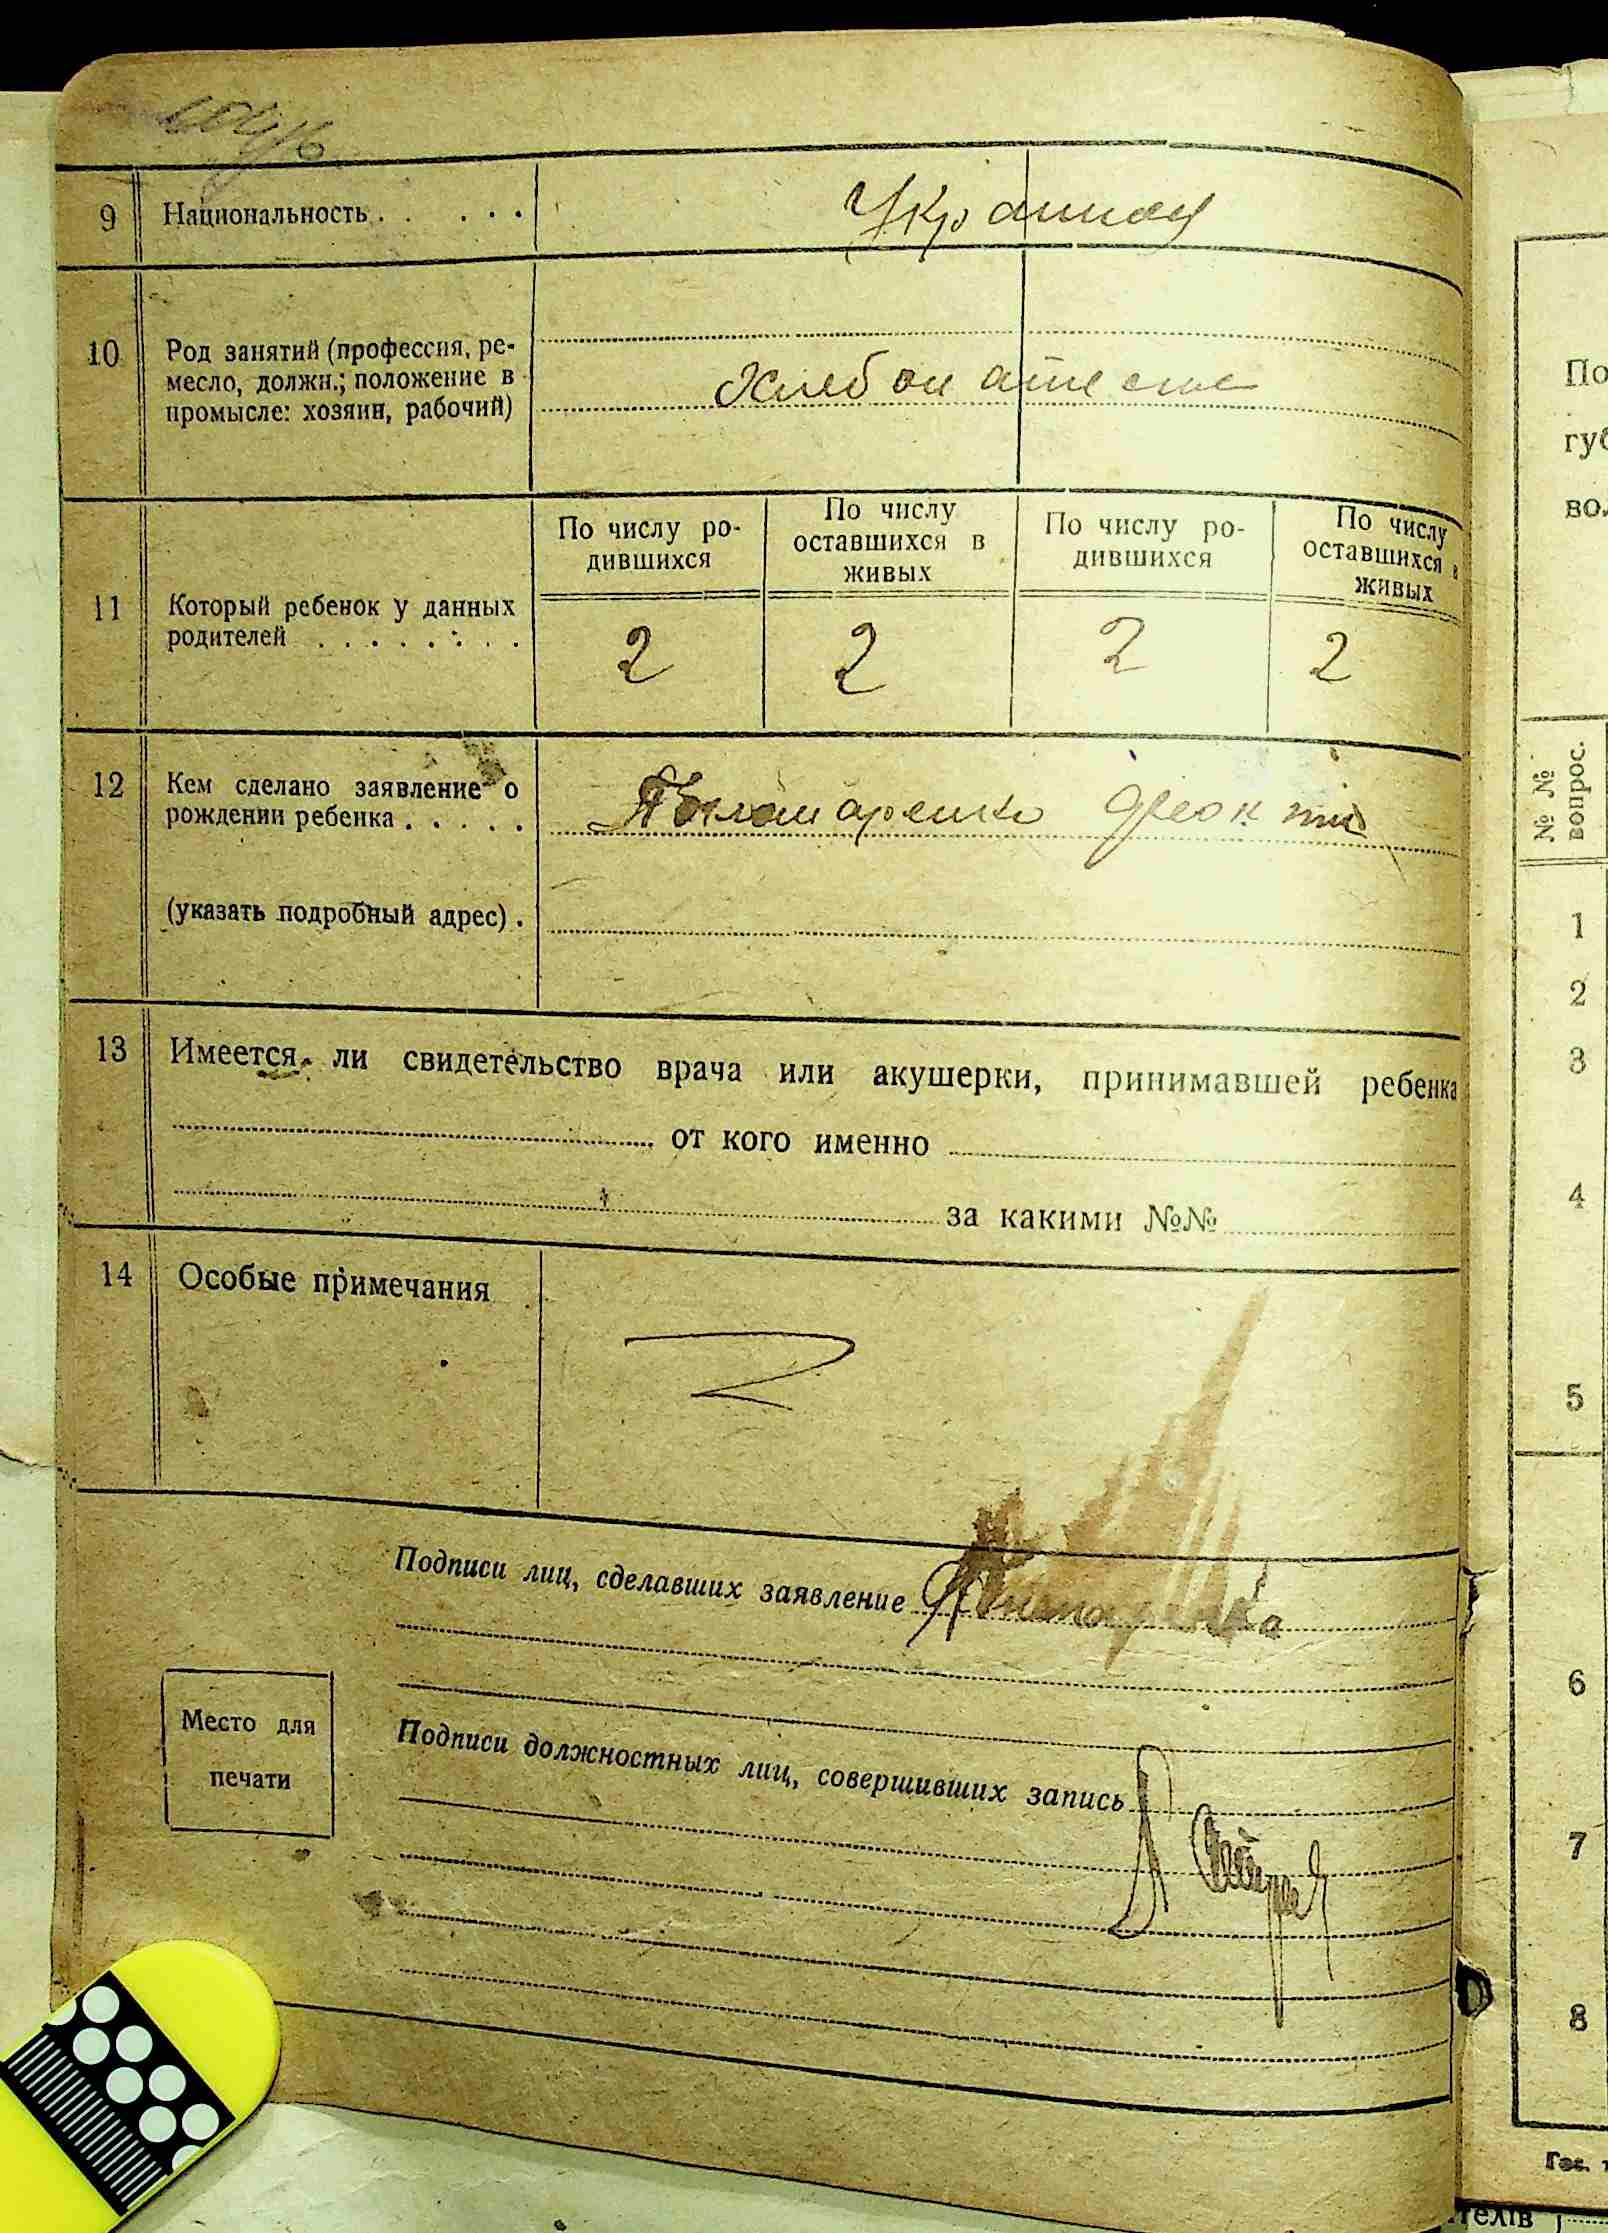 9 Национальность . . . . . .
10 Род занятий (профессия, ре-
месло, должн.; положение в
промысле: хозяин, рабочий)
11 Который ребенок у данных
родителей . . . . . . . .
По числу ро-
дившихся
По числу
оставшихся в
живых
По числу ро-
дившихся
По числу
оставшихся в
живых
2 2 2 2
12 Кем сделано заявление о
рождении ребенка . . . . .
Пономаренко
(указать подробный адрес) .
13 Имеется ли свидетельство врача или акушерки, принимавшей ребенка
от кого именно
за какими №№
14 Особые примечания
Подписи лиц, сделавших заявление
Место для
печати
Подписи должностных лиц, совершивших запись
По
губ
вол
№ №
вопрос.
1
2
3
4
5
6
7
8
Гос. т
ителів